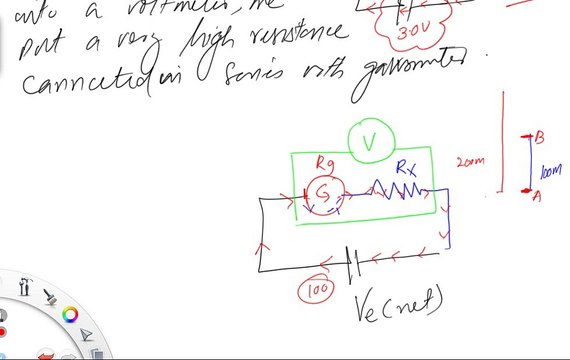 into a voltmeter, we
put a very high resistance
3.0V
connected in series with galvanometer.
V
Rg
Rx
G
200m
B
100m
A
100
Ve (net)